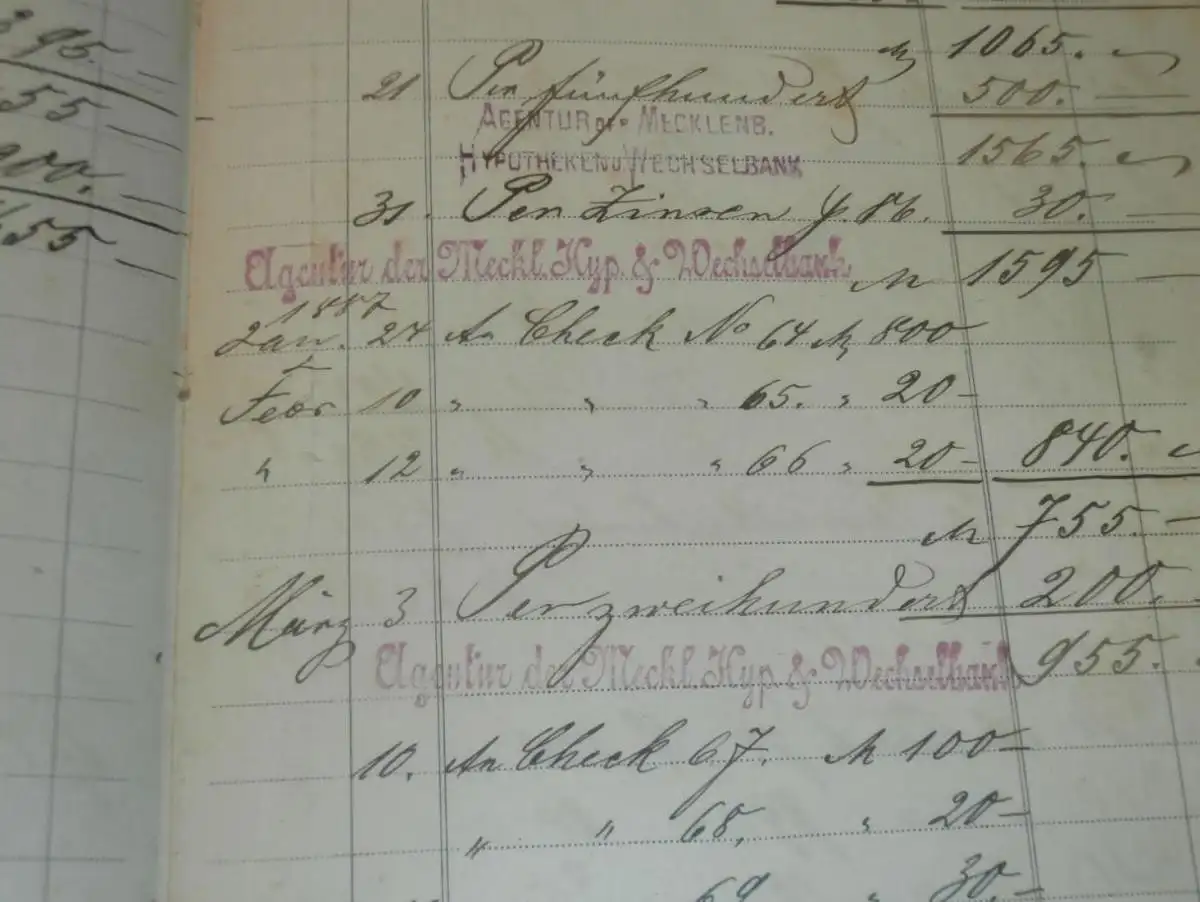 395. —
55 —
900. —
155 —
M 1065. —
21 Per fünfhundert 500. —
AGENTUR DER MECKLENB.
HYPOTHEKEN U WECHSELBANK
1565. —
31. Per Zinsen p. 86. 30. —
Agentur der Meckl. Hyp. & Wechselbank
M 1595 —
1887
Jan. 24 An Check No 64 M 800
Febr 10 " " " 65. " 20 —
" 12 " " " 66 " 20 — 840. —
M 755. —
März 3 Per zweihundert 200. —
Agentur der Meckl. Hyp. & Wechselbank
955. —
10. An Check 67. M 100 —
" " 68, " 20 —
69 " 30. —